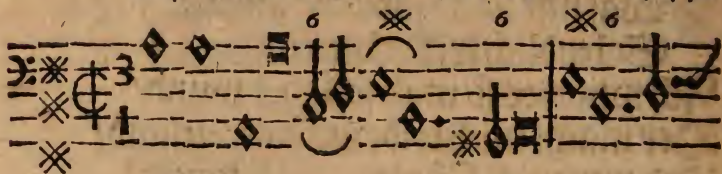 6 6 6
3